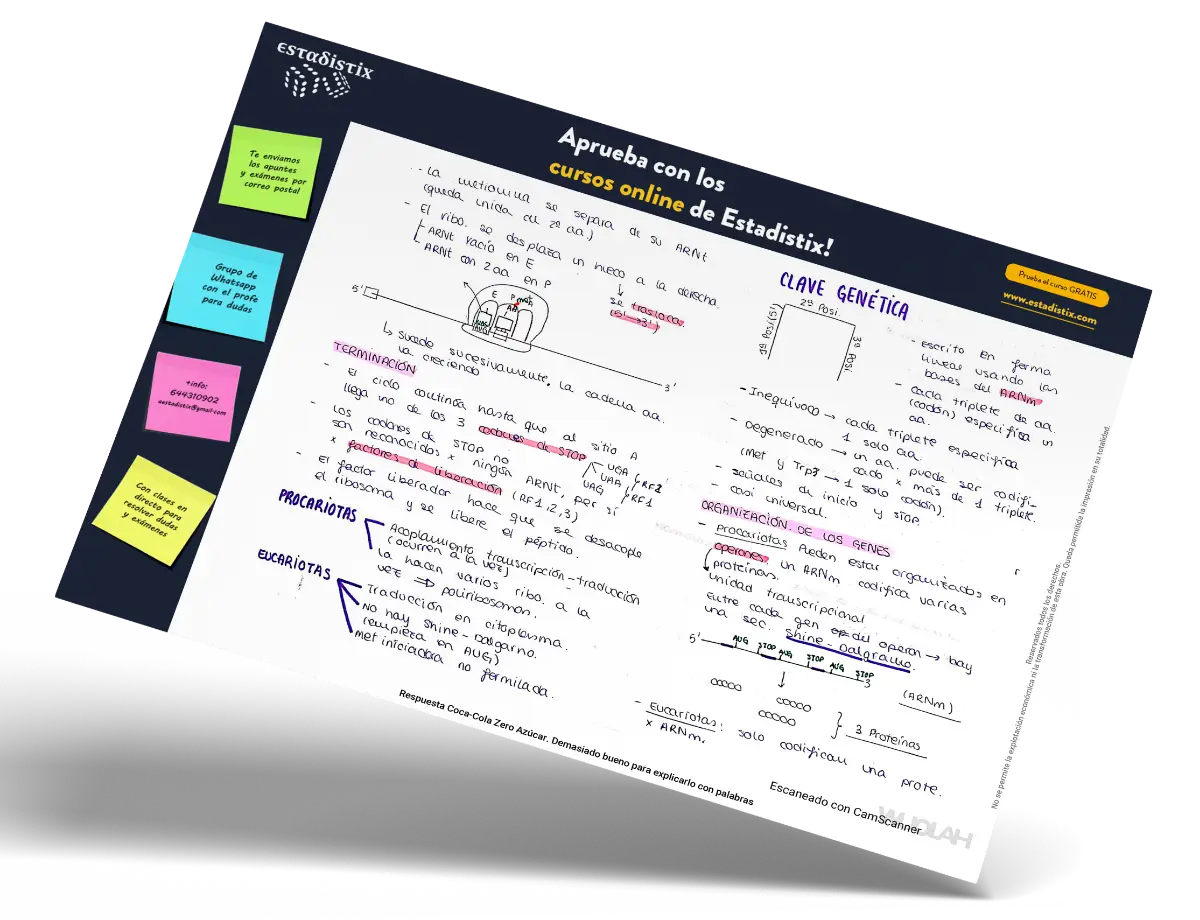 estadistix
Aprueba con los
cursos online de Estadistix!
Prueba el curso GRATIS
www.estadistix.com
Te enviamos
los apuntes
y exámenes por
correo postal
Grupo de
Whatsapp
con el profe
para dudas
+info:
644310902
aestadistix@gmail.com
Con clases en
directo para
resolver dudas
y exámenes
- La metionina se separa de su ARNt
(queda unida al 2º aa.)
- El ribo. se desplaza un hueco a la derecha.
ARNt vacío en E
ARNt con 2aa en P
↓
se trasloca
(5' → 3')
5'
E P A
3'
↳ Sucede sucesivamente, la cadena aa.
va creciendo
TERMINACIÓN
- El ciclo continúa hasta que al sitio A
llega uno de los 3 codones de STOP
UGA
UAA
UAG
RF2
RF1
- Los codones de STOP no
son reconocidos x ningún ARNt, per sí
x factores de liberación (RF1,2,3)
- El factor liberador hace que se desacople
el ribosoma y se libere el péptido.
PROCARIOTAS
Acoplamiento transcripción-traducción
(ocurren a la vez)
La hacen varios ribo. a la
vez ⇒ poliribosomon.
EUCARIOTAS
Traducción en citoplasma.
No hay Shine-Dalgarno.
(empieza en AUG)
Met iniciadora no formilada.
CLAVE GENÉTICA
2ª Posi.
1ª Posi(5')
3ª Posi
- escrito en forma
lineal usando las
bases del ARNm
- cada triplete de
(codón) especifica un
aa.
- Inequívoco → cada triplete especifica
1 solo aa.
- Degenerado → un aa. puede ser codifi-
cado x más de 1 triplet.
(Met y Trp3 → 1 solo codón).
- señales de inicio y STOP.
- casi universal.
ORGANIZACIÓN DE LOS GENES
- procariotas Pueden estar organizados en
operones, un ARNm codifica varias
proteínas.
unidad transcripcional
Entre cada gen del operon → hay
una sec. Shine-Dalgrano.
5' AUG STOP AUG STOP AUG STOP 3'
(ARNm)
3 Proteínas
- Eucariotas: solo codifican una prote.
x ARNm.
Respuesta Coca-Cola Zero Azúcar. Demasiado bueno para explicarlo con palabras
Escaneado con CamScanner
WUOLAH
No se permite la explotación económica ni la transformación de esta obra. Queda permitida la impresión en su totalidad.
Reservados todos los derechos.